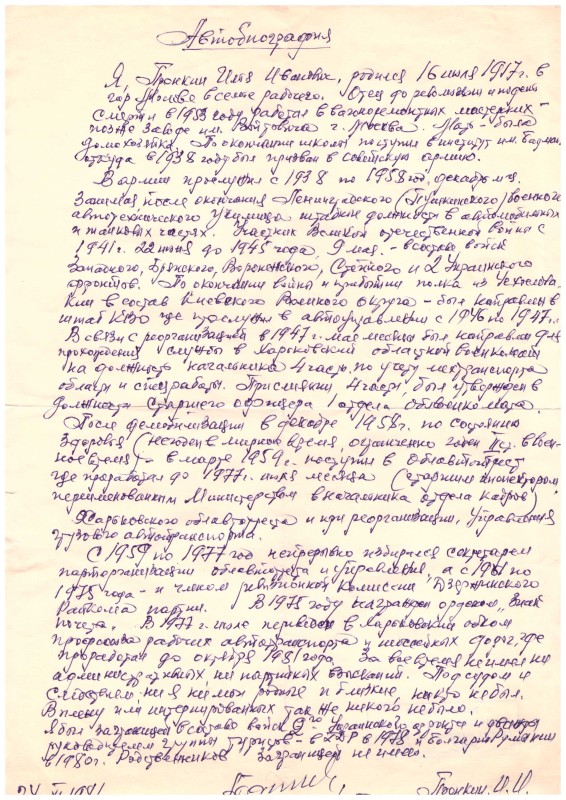 Автобиография
Я, Пронкин Илья Иванович, родился 16 июля 1917 г. в
гор. Москве в семье рабочего. Отец до революции и
смерти в 1953 году работал в вагоноремонтных мастерских -
позже заводе им. Войтовича г. Москва. Мать - была
домохозяйка. По окончании школы поступил в институт им. Баумана,
откуда в 1938 году был призван в советскую армию.
В армии прослужил с 1938 по 1958 год, декабрь м-ц.
Занимал после окончания Ленинградского (Пушкинского) военного
автотехнического училища штабные должности в автомобильных
и танковых частях. Участник Великой отечественной войны с
1941 г. 22 июня до 1945 года, 9 мая. - в составе войск
Западного, Брянского, Воронежского, Степного и 2 Украинского
фронтов. По окончании войны и прибытии полка из Чехослова-
кии в состав Киевского Военного округа - был направлен в
штаб КВО где прослужил в автоуправлении с 1946 по 1947 г.
В связи с реорганизацией в 1947 г. мае месяце был направлен для
прохождения службы в Харьковский областной военкомат
на должность начальника 4 части, по учету мехтранспорта
области и спецработы. При слиянии 4 части, был утвержден в
должности старшего офицера 1 отдела облвоенкомата.
После демобилизации в декабре 1958 г. по состоянию
здоровья (не годен в мирное время, ограниченно годен II ст. в воен-
ное время) - в марте 1959 г. поступил в Облавтотрест
где проработал до 1977 г. июля месяца (старшим инспектором,
переименованным Министерством в начальника отдела кадров)
Харьковского облавтотреста и при реорганизации, Управления
грузового автотранспорта.
С 1959 по 1977 год непрерывно избирался секретарем
парторганизации облавтотреста и управления, а с 1961 по
1975 года - и членом ревизионной комиссии Дзержинского
Райкома партии. В 1975 году награжден орденом "Знак
почета". В 1977 г. июле переведен в Харьковский обком
профсоюза рабочих автотранспорта и шоссейных дорог, где
проработал до октября 1981 года. За все время не имел ни
административных, ни партийных взысканий. Под судом и
следствием ни я ни мои родные и близкие, никто не был.
В плену или интернированных так же никого не было.
Я был за границей в составе войск 2го Украинского фронта и
руководителем группы туристов - в ГДР в 1978 и Болгарии Румынии
в 1980 г. Родственников за границей не имею.
Пронкин И.И.